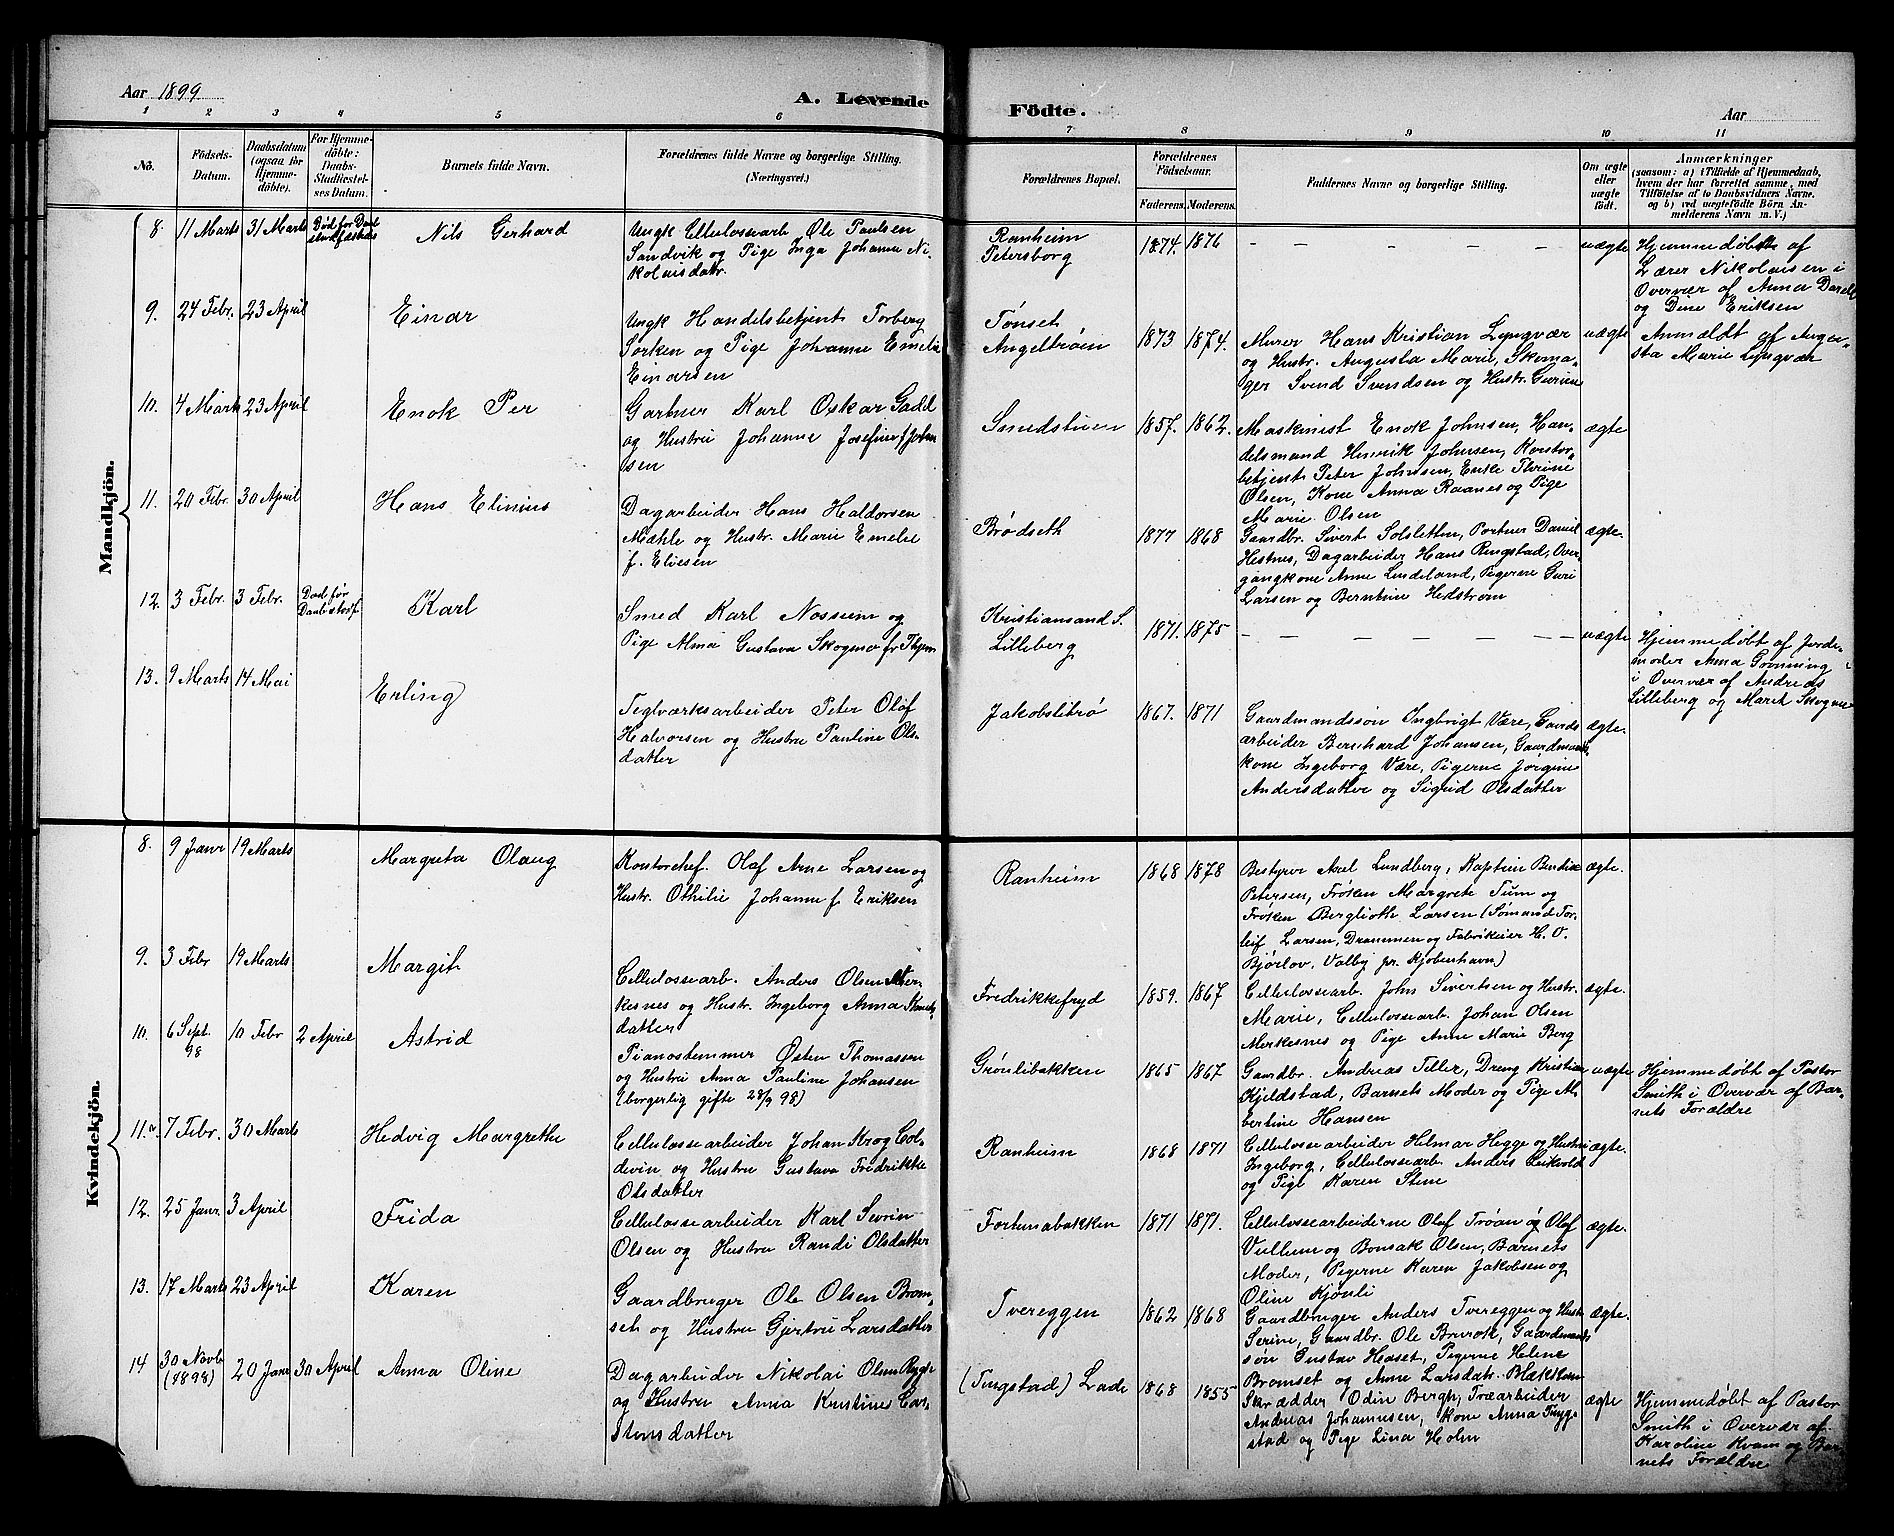 Aar 1899
A. Levende
Födte.
Aar
1 2 3 4 5 6 7 8 9 10 11
No.
Födsels-
Datum.
Daabsdatum
(ogsaa for
Hjemme-
döbte).
For Hjemme-
döbte:
Daabs-
Stadfæstel-
ses Datum.
Barnets fulde Navn.
Forældrenes fulde Navne og borgerlige Stilling.
(Næringsvei.)
Forældrenes Bopæl.
Forældrenes
Födselsaar.
Faderens. Moderens.
Faddernes Navne og borgerlige Stilling.
Om ægte
eller
uægte
födt.
Anmærkninger
(saasom: a) i Tilfælde af Hjemmedaab,
hvem der har forrettet samme, med
Tilföielse af to Daabsvidners Navne.
og b) ved uægtefödte Börn An-
melderens Navn m. V.)
Mandkjön.
8. 11 Marts 31 Marts Død før Daab
stadfæstelse
Nils Gerhard
Ungk Cellulossearb Ole Paulsen
Sandvik og Pige Inga Johanne Ni-
kolaisdatr.
Ranheim
Petersborg
1874. 1876
uægte
Hjemmedøbt af
Lærer Nikolaisen i
Overvær af Anna Darell
og Dine Eriksen
9. 24 Febr. 23 April
Einar
Ungk Handelsbetjent Torberg
Sørken og Pige Johanne Emelie
Einarsen
Tønset
Angeltrøen
1873 1874.
Murer Hans Kristian Lyngvær
og Hustr. Augusta Marie, Skoma-
ger Svend Svendsen og Hustr. Gurine
uægte
Anmældt af Augu-
sta Marie Lyngvær
10. 4 Marts 23 April
Enok Per
Gartner Karl Oskar Gadd
og Hustru Johanne Josefine f. John
sen
Smedstuen
1857. 1862.
Maskinist Enok Johnsen, Han-
delsmand Henrik Johnsen, Kontor-
betjent Peter Johnsen, Enke Thrine
Olsen, Kone Anna Raanes og Pige
Marie Olsen
ægte
11. 20 Febr. 30 April
Hans Elinius
Dagarbeider Hans Haldorsen
Mæhle og Hustr. Marie Emelie
f. Eliesen
Brødseth
1877 1868
Gaardbr. Sivert Solsletten, Portner Daniel
Hestnes, Dagarbeider Hans Ringstad, Over
gangkone Anne Lindeland, Pigerne Guri
Larsen og Bernhine Hedstrøm
ægte.
12. 3 Febr. 3 Febr. Død før
Daabstadf.
Karl
Smed Karl Nossum og
Pige Alma Gustava Skogmo fr
Kristiansand S.
Lilleberg
1871. 1875
uægte
Hjemmedøbt af Jorde-
moder Anna Grønning
i Overvær af Andreas
Lilleberg og Marit Skogmo
13. 9 Marts 14 Mai
Erling
Teglværksarbeider Peter Olaf
Halvorsen og Hustru Pauline Ols-
datter
Jakobslitrø
1867. 1871
Gaardmandssøn Ingbrigt Være, Gaards
arbeider Bernhard Johansen, Gaardmands
kone Ingeborg Være, Pigerne Jørgine
Andersdatter og Sigrid Olsdatter
ægte.
Kvindekjön.
8. 9 Janr 19 Marts
Margreta Olaug
Kontorchef. Olaf Arne Larsen og
Hustr. Othilie Johanne f. Eriksen
Ranheim
1868 1878
Bestyrer Axel Lundberg, Kaptein
Petersen, Frøken Margrete Tum og
Frøken Berglioth Larsen (Sømand Tor-
leif Larsen, Drammen og Fabrikeier H. O.
Bjørlov, Valby pr. Kjøbenhavn)
ægte.
9. 3 Febr 19 Marts
Margit
Cellulossearb. Anders Olsen Mer-
kesnes og Hustr. Ingeborg Anna
datter
Fredrikkefryd
1859. 1867
Cellulossearb. John Sivertsen og Hustr.
Marie, Cellulossearb. Johan Olsen
Merkesnes og Pige Anne Marie Berg
ægte.
10. 6 Sept.
98
10 Febr 2 April
Astrid
Pianostemmer Østen Thomassen
og Hustru Anna Pauline Johansen
(borgerlig gifte 28/9 98)
Grønlibakken
1865 1867
Gaardbr. Andreas Tiller, Dreng Kristian
Kjeldstad, Barnets Moder og Pige Al-
bertine Hansen
uægte
Hjemmedøbt af Pastor
Smith i Overvær af Bar-
nets Forældre
11. 7 Febr. 30 Marts
Hedvig Margrethe
Cellulossearbeider Johan Krog Col-
devin og Hustru Gustava Fredrikke
Olsdatter
Ranheim
1868 1871
Cellulossearbeider Hilmar Hegge og Hustru
Ingeborg, Cellulossearb. Anders Leikvold
og Pige Karen Stene
ægte.
12. 25 Janr. 3 April
Frida
Cellulossearbeider Karl Sevrin
Olsen og Hustru Randi Olsdatter
Fortunabakken
1871 1871.
Cellulossearbeiderne Olaf Trøan og Olaf
Vullum og Bonsak Olsen, Barnets
Moder, Pigerne Karen Jakobsen og
Oline Kjønli
ægte.
13. 17 Marts 23 April
Karen
Gaardbruger Ole Olsen Brøm-
set og Hustru Gjertru Larsdatter
Tvereggen
1862 1868
Gaardbruger Anders Tvereggen og Hustr
Serine, Gaardbr. Ole Brurok, Gaardmands
søn Gustav Heaset, Pigerne Helene
Brømset og Anne Larsdatr.
ægte.
14 30 Novb
(1898)
20 Janr 30 April
Anna Oline
Dagarbeider Nikolai Olsen Rygg
og Hustru Anna Kristine Car-
stensdatter
(Tingstad) Lade
1868 1855
Skrædder Odin Bergh, Træarbeider
Andreas Johannesen, Kone Anna Tryg-
stad og Pige Lina Holm
ægte
Hjemmedøbt af Pastor
Smith i Overvær af
Karoline Kvam og Bar-
nets Forældre